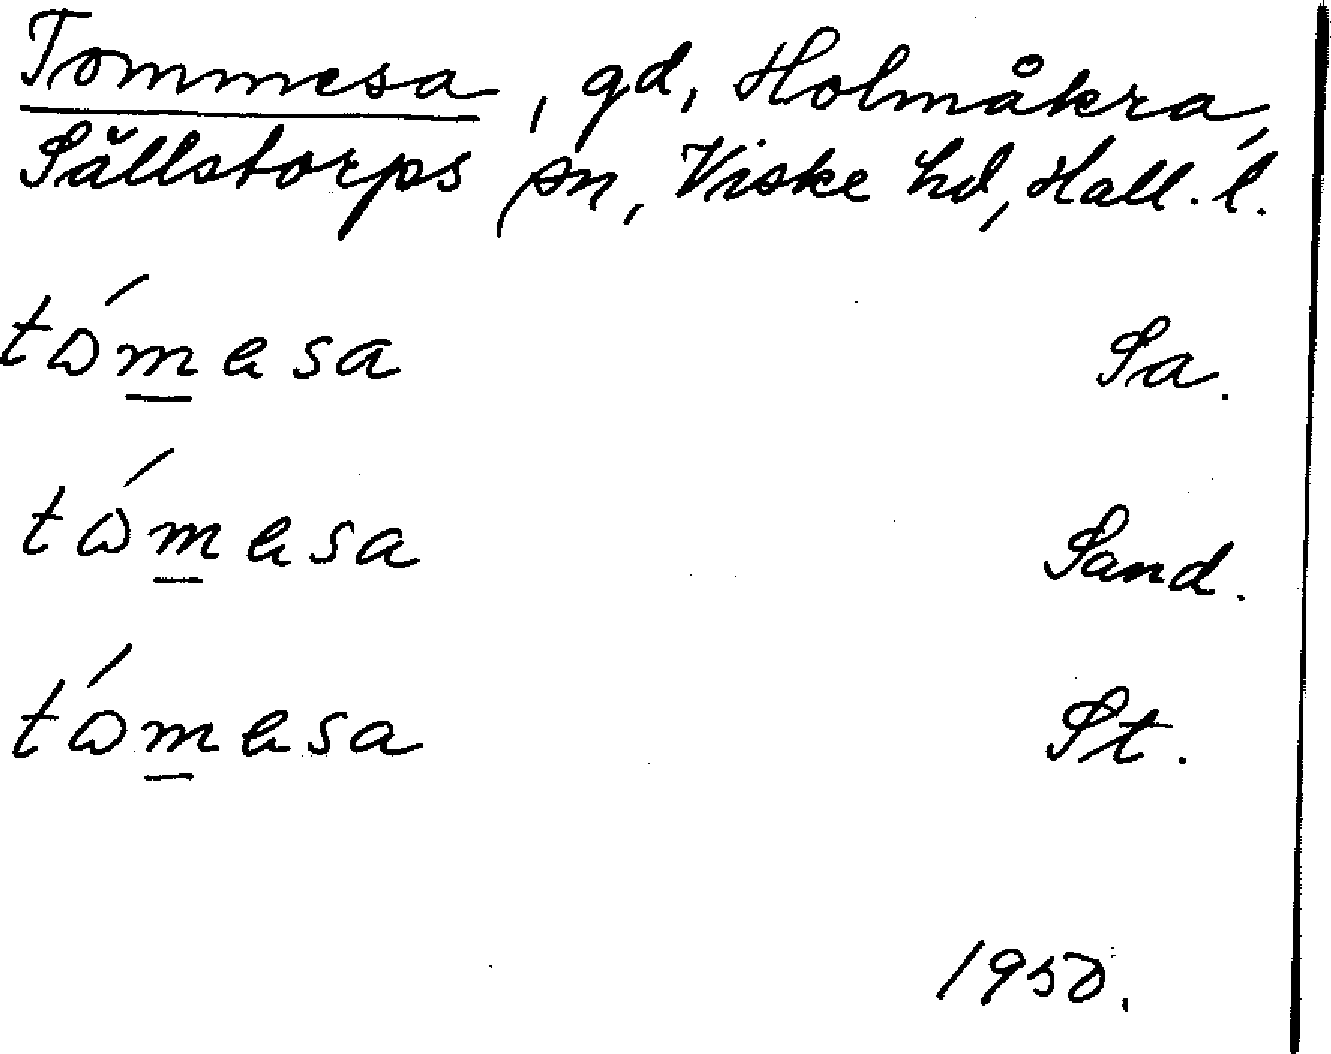 Tommesa, gd, Holmåkra,
Sällstorps sn, Viske hd, Hall. l.
tómesa Sa.
tómesa Sand.
tómesa St.
1950.